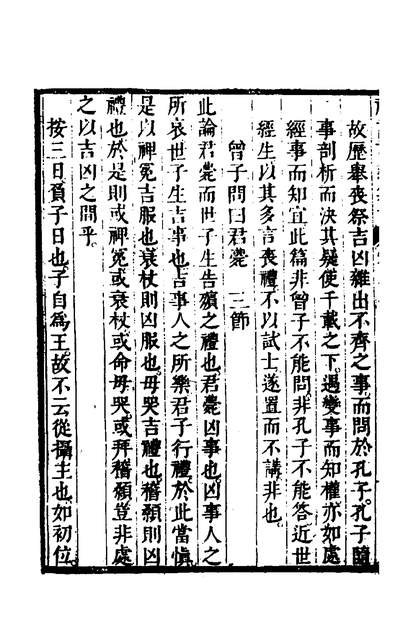 故歷舉喪祭吉凶雜出不齊之事而問於孔子孔子隨
事剖析而決其疑使千載之下遇變事而知權亦如處
經事而知宜此篇非曾子不能問非孔子不能答近世
經生以其多言喪禮不以試士遂置而不講非也
曾子問曰君薨 三節
此論君薨而世子生告殯之禮也君薨凶事也凶事人之
所哀世子生吉事也吉事人之所樂君子行禮於此當愼
是以裨冕吉服也衰杖則凶服也毋哭吉禮也稽顙則凶
禮也於是則或裨冕或衰杖或命毋哭或拜稽顙豈非處
之以吉凶之間乎
按三日負子日也子自爲王故不云從攝主也如初位